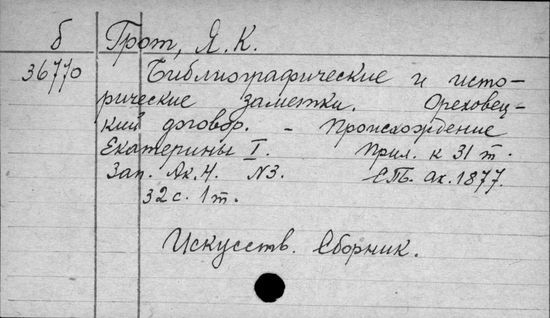 б Грот, Я. К.
36770 Библиографические и исто-
рические заметки. Ореховец-
кий договор. - Происхождение
Екатерины I. Прил. к 31 т.
Зап. Ак. Н. N3. СПБ. ак. 1877.
32 с. 1 т.
Искусств. Сборник.